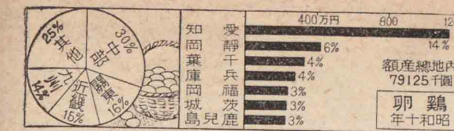 30%
中部
關東
16%
近畿
15%
九州
14%
其他
25%
400万円 800
愛知 14%
靜岡 6%
千葉 4%
兵庫 4%
福岡 3%
茨城 3%
鹿兒島 3%
内地總產額
79125千圓
鷄卵
昭和十年